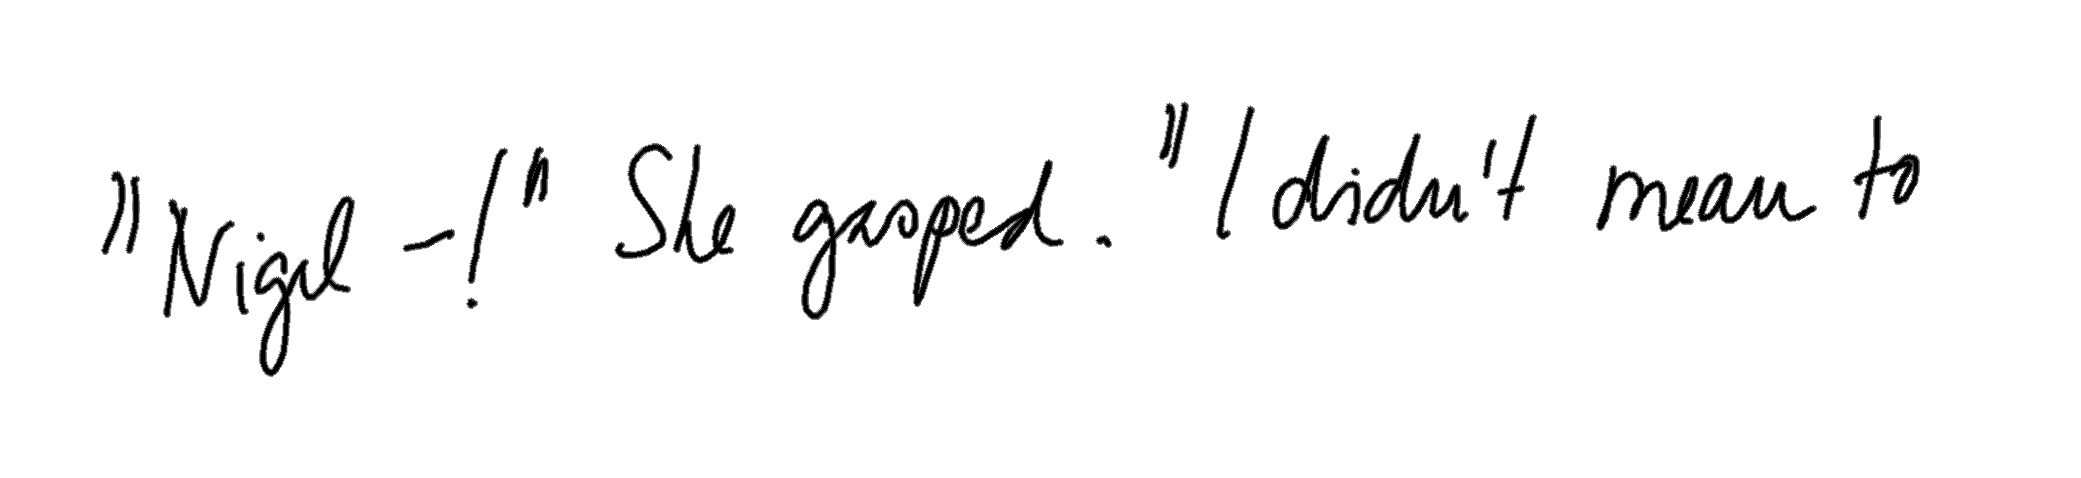 "Nigel -!" She gasped. "I didn't mean to